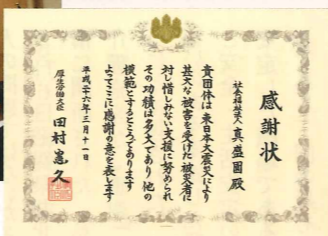 感謝状
社会福祉法人 真盛園殿
貴団体は東日本大震災により
甚大な被害を受けた被災者に
対し惜しみない支援に努められ
その功績は多大であり他の
模範とするところであります
よってここに感謝の意を表します
平成二十六年三月十一日
厚生労働大臣 田村憲久